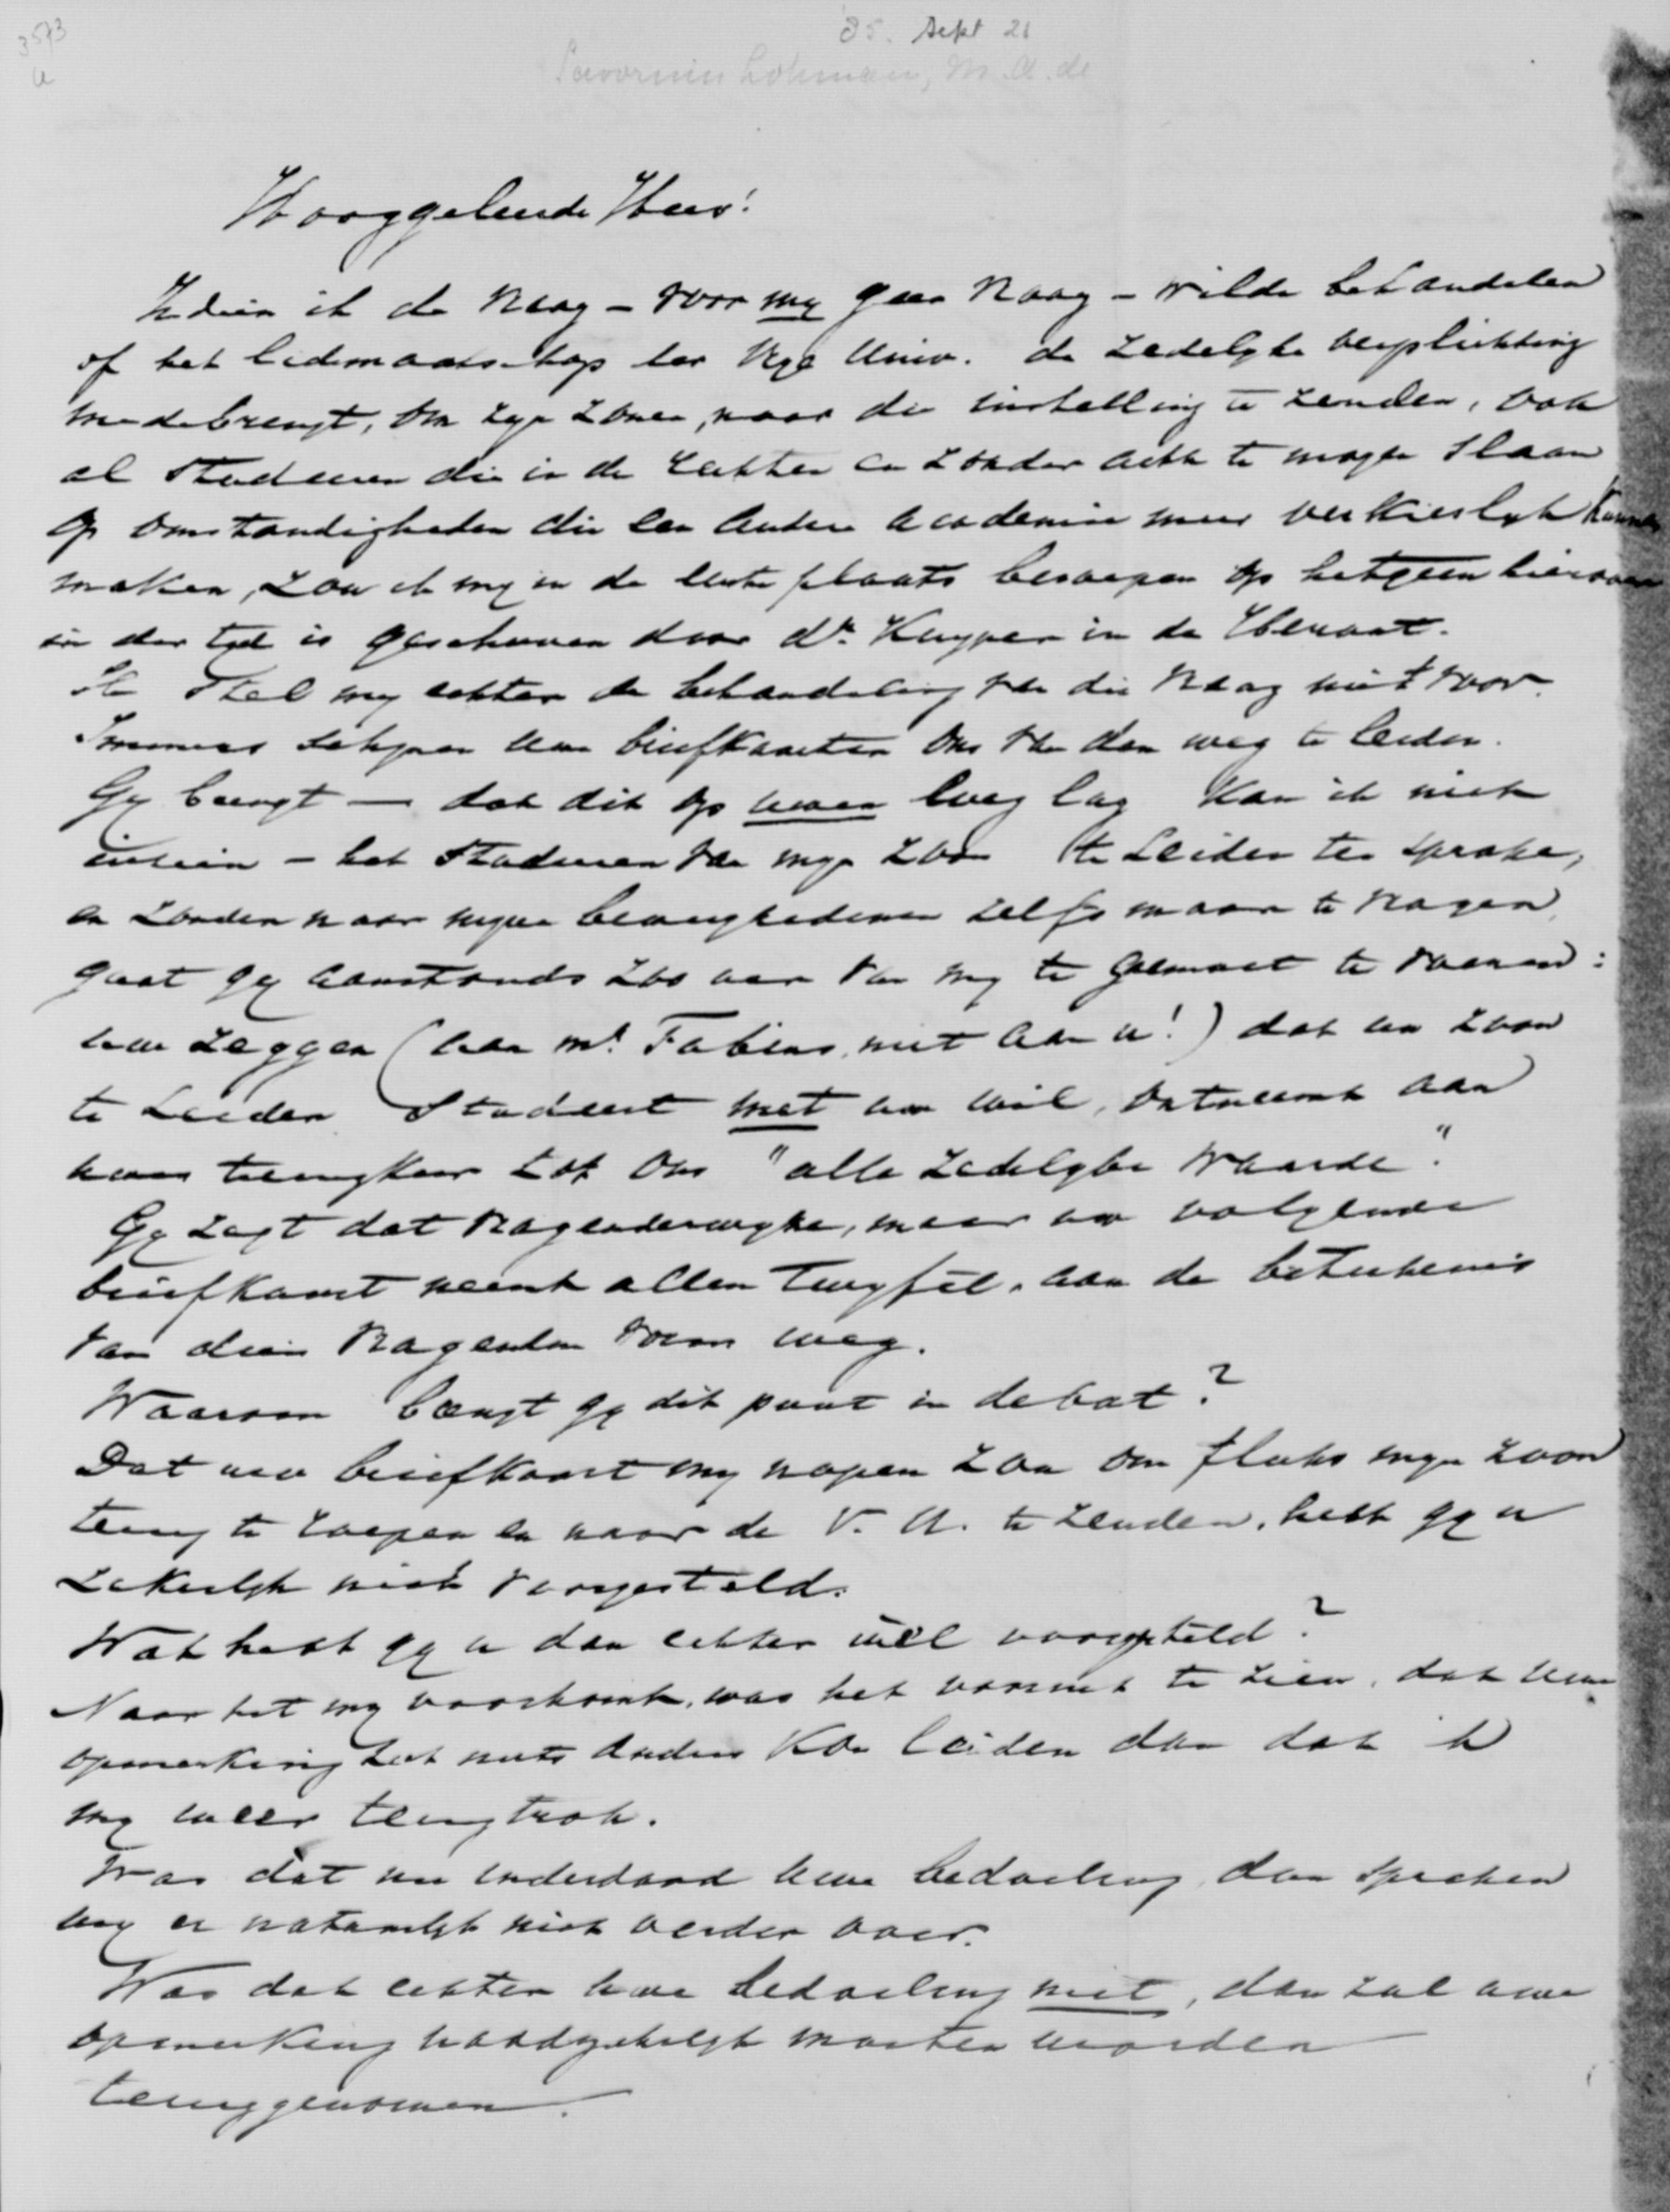 3573
a
85. Sept 21
Savornin Lohman, M. A. de
Hooggeleerde Heer!
Indien ik de vraag – voor my geen vraag – wilde behandelen
of het lidmaatschap der Vrye Univ. de zedelyke verplichting
medebrengt, om zyn zonen, naar die instelling te zenden, ook
al studeeren die in de rechten en zonder acht te mogen slaan
op omstandigheden die een andere academie meer verkieslyk kunnen
maken, zou ik my in de eerste plaats beroepen op hetgeen hierover
in der tyd is geschreven door dr. Kuyper in de Heraut.
Ik stel my echter de behandeling van die vraag niet voor.
Immers schynen uwe briefkaarten ons van den weg te leiden.
Gy brengt – dat dit op uwen weg lag kan ik niet
inzien – het studeeren van myn zoon te Leiden ter sprake,
en zonder naar myne beweegredenen zelfs maar te vragen
gaat gy aanstonds zoo ver van my te gemoet te voeren:
uw zeggen (aan mr. Fabius, niet aan u!) dat uw zoon
te Leiden studeert met uw wil, ontneemt aan
uwen terugkeer tot ons "alle zedelyke waarde".
Gy zegt dat vragenderwyze, maar uw volgende
briefkaart neemt allen twyfel aan de beteekenis
van dien vragenden vorm weg.
Waarom brengt gy dit punt in debat?
Dat uw briefkaart my nopen zou om fluks myn zoon
terug te roepen en naar de V. U. te zenden, hebt gy u
zekerlyk niet voorgesteld.
Wat hebt gy u dan echter wel voorgesteld?
Naar het my voorkomt, was het vooruit te zien, dat uwe
opmerking tot niets anders kon leiden dan dat ik
my weer terugtrok.
Was dat nu inderdaad uwe bedoeling, dan spreken
wy er natuurlyk niet verder over.
Was dat echter uwe bedoeling niet, dan zal uwe
opmerking noodzakelyk moeten worden
teruggenomen.